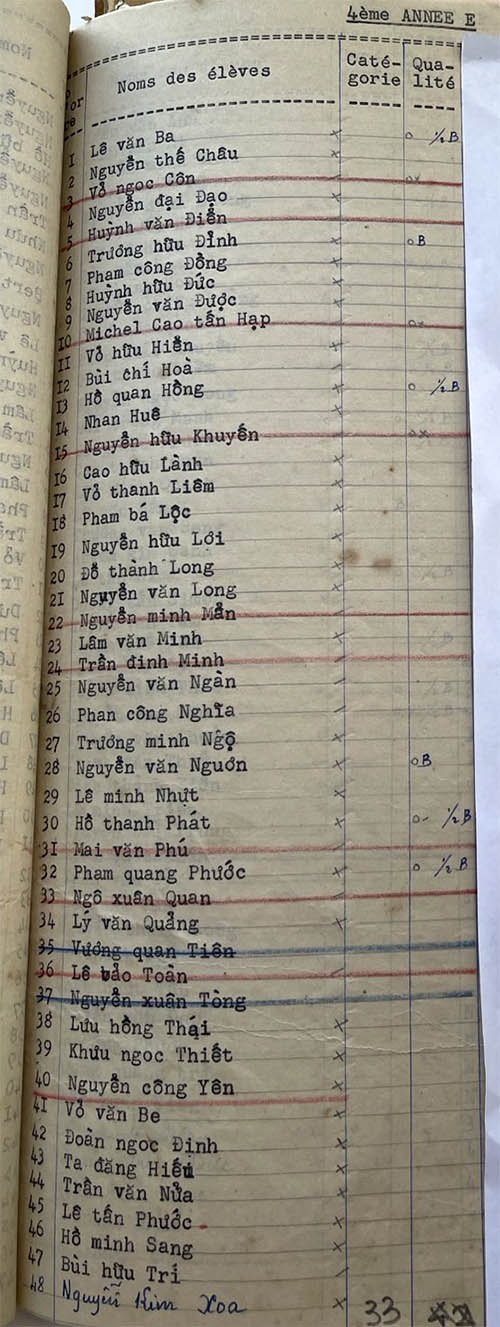 4ème ANNEE E
Noms des élèves Caté- Qua-
gorie lité
I Lê văn Ba x o ½ B
2 Nguyễn thế Châu x
3 Vỏ ngọc Côn ox
4 Nguyễn đại Đạo x
5 Huỳnh văn Điển
6 Trương hữu Đỉnh x o B
7 Phạm công Đồng x
8 Huỳnh hữu Đức x
9 Nguyễn văn Được x
IO Michel Cao tấn Hạp ox
II Vỏ hữu Hiển x
I2 Bùi chí Hoà
I3 Hồ quan Hồng x o ½ B
I4 Nhan Huê x
I5 Nguyễn hữu Khuyến ox
I6 Cao hữu Lành x
I7 Vỏ thanh Liêm x
I8 Phạm bá Lộc x
I9 Nguyễn hữu Lợi x
20 Đỗ thành Long x
2I Nguyễn văn Long x
22 Nguyễn minh Mẫn
23 Lâm văn Minh x
24 Trần đình Minh
25 Nguyễn văn Ngàn
26 Phan công Nghĩa
27 Trương minh Ngộ x
28 Nguyễn văn Nguơn x o B
29 Lê minh Nhựt x
30 Hồ thanh Phát x o- ½ B
3I Mai văn Phú
32 Phạm quang Phước x o ½ B
33 Ngô xuân Quan
34 Lý văn Quảng x
35 Vương quan Tiên
36 Lê bảo Toàn
37 Nguyễn xuân Tòng
38 Lưu hồng Thái x
39 Khưu ngọc Thiết x
40 Nguyễn công Yên x
4I Vỏ văn Be x
42 Đoàn ngọc Định x
43 Tạ đăng Hiếu x
44 Trần văn Nửa x
45 Lê tấn Phước x
46 Hồ minh Sang x
47 Bùi hữu Trí
48 Nguyễn Kim Xoa x 33